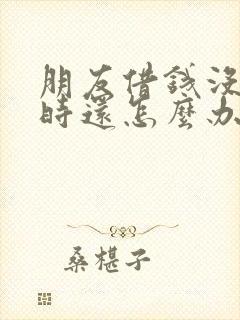 朋友借錢沒
時還怎麼办
桑椹子